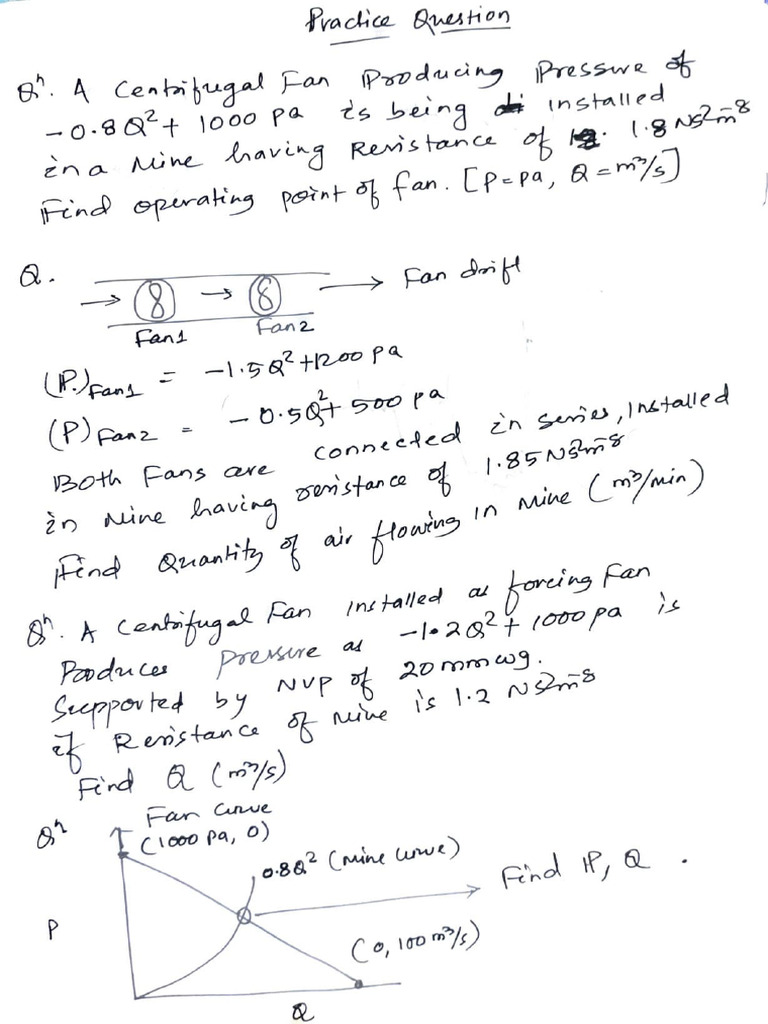 Practice Question
Qⁿ. A Centrifugal Fan Producing Pressure of
-0.8Q² + 1000 pa is being installed
in a Mine having Resistance of 1.8 Ns²m⁻⁸
Find operating point of fan. [P = pa, Q = m³/s]
Q.
→ 8 → 8 → Fan drift
Fan1 Fan2
(P.)Fan1 = -1.5Q² + 1200 pa
(P) Fan2 = -0.5Q² + 500 pa
Both Fans are connected in series, Installed
in Mine having resistance of 1.85 Ns²m⁻⁸
Find Quantity of air flowing in Mine (m³/min)
Qⁿ. A Centrifugal Fan Installed as forcing Fan
Produces pressure as -1.2Q² + 1000 pa is
Supported by NVP of 20 mm wg.
if Resistance of Mine is 1.2 Ns²m⁻⁸
Find Q (m³/s)
Qⁿ
Fan Curve
(1000 pa, 0)
0.8Q² (Mine Curve)
Find P, Q.
P
(0, 100 m³/s)
Q